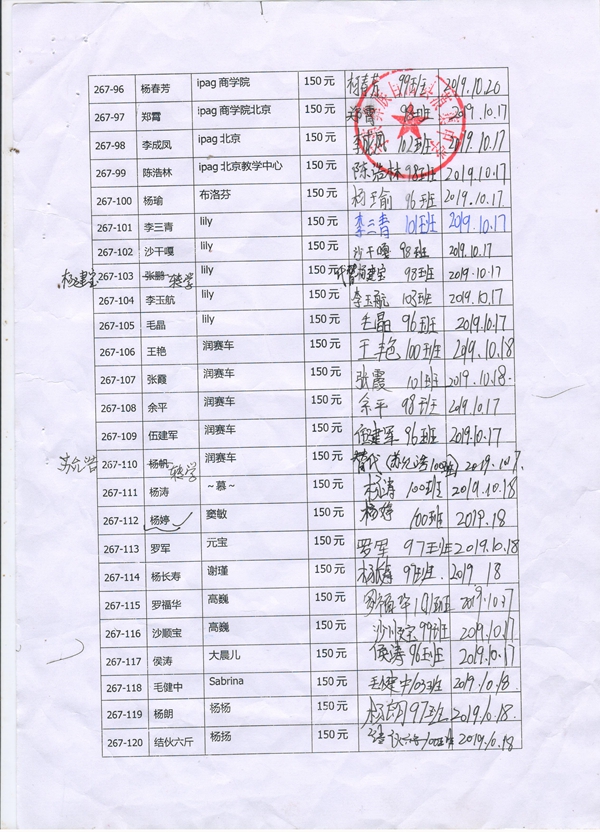 267-96 杨春芳 ipag 商学院 150元 杨春芳 99班 2019.10.20
267-97 郑霄 ipag 商学院北京 150元 郑霄 98班 2019.10.17
267-98 李成凤 ipag 北京 150元 李成凤 102班 2019.10.17
267-99 陈浩林 ipag 北京教学中心 150元 陈浩林 98班 2019.10.17
267-100 杨瑜 布洛芬 150元 杨瑜 96班 2019.10.17
267-101 李三青 lily 150元 李三青 101班 2019.10.17
267-102 沙干嘎 lily 150元 沙干嘎 98班 2019.10.17
杨建宝 267-103 张鹏 转学 lily 150元 代替杨建宝 98班 2019.10.17
267-104 李玉航 lily 150元 李玉航 103班 2019.10.17
267-105 毛晶 lily 150元 毛晶 96班 2019.10.17
267-106 王艳 润赛车 150元 王艳 100班 2019.10.18
267-107 张霞 润赛车 150元 张霞 101班 2019.10.18.
267-108 余平 润赛车 150元 余平 98班 2019.10.17
267-109 伍建军 润赛车 150元 伍建军 96班 2019.10.17
267-110 杨帆 转学 润赛车 150元 替代 100班
267-111 杨涛 ～慕～ 150元 杨涛 100班 2019.10.18
267-112 杨婷 窦敏 150元 杨婷 100班 2019.18
267-113 罗军 元宝 150元 罗军 97班 2019.10.18
267-114 杨长寿 谢瑾 150元 97班 2019 18
267-115 罗福华 高巍 150元 罗福华 101班 2019.10.17
267-116 沙顺宝 高巍 150元 沙顺宝 99班 2019.10.17
267-117 侯涛 大晨儿 150元 侯涛 96班 2019.10.17
267-118 毛健中 Sabrina 150元 毛健中 103班 2019.10.18
267-119 杨朗 杨杨 150元 杨朗 97班 2019.10.18.
267-120 结伙六斤 杨扬 150元 100班 2019.10.18